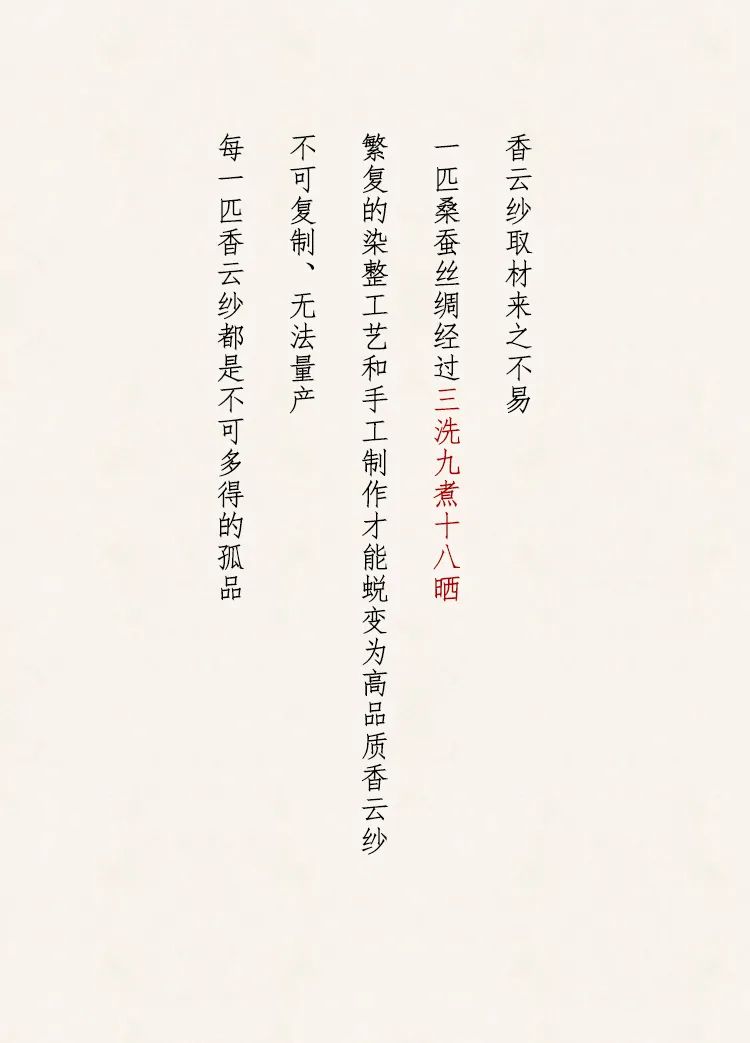 香云纱取材来之不易
一匹桑蚕丝绸经过三洗九煮十八晒
繁复的染整工艺和手工制作才能蜕变为高品质香云纱
不可复制、无法量产
每一匹香云纱都是不可多得的孤品